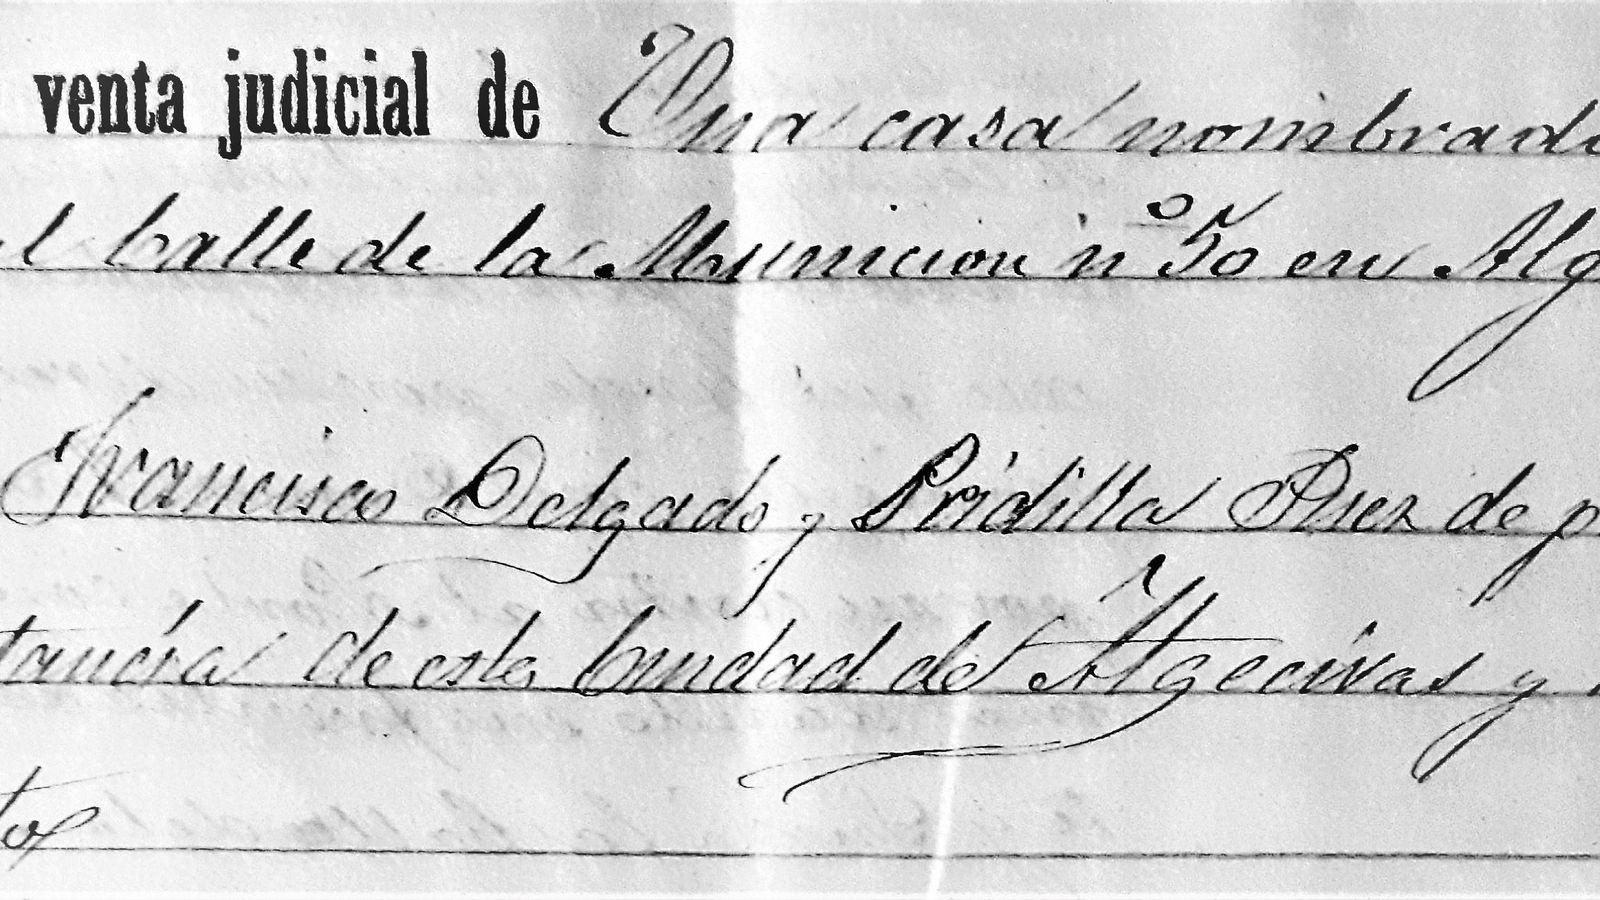 venta judicial de Una casa nombrad
el Calle de la Municion nº 50 en Alg
Francisco Delgado y Pridilla Prier de p
tancia de esta Ciudad de Algeciras y
to